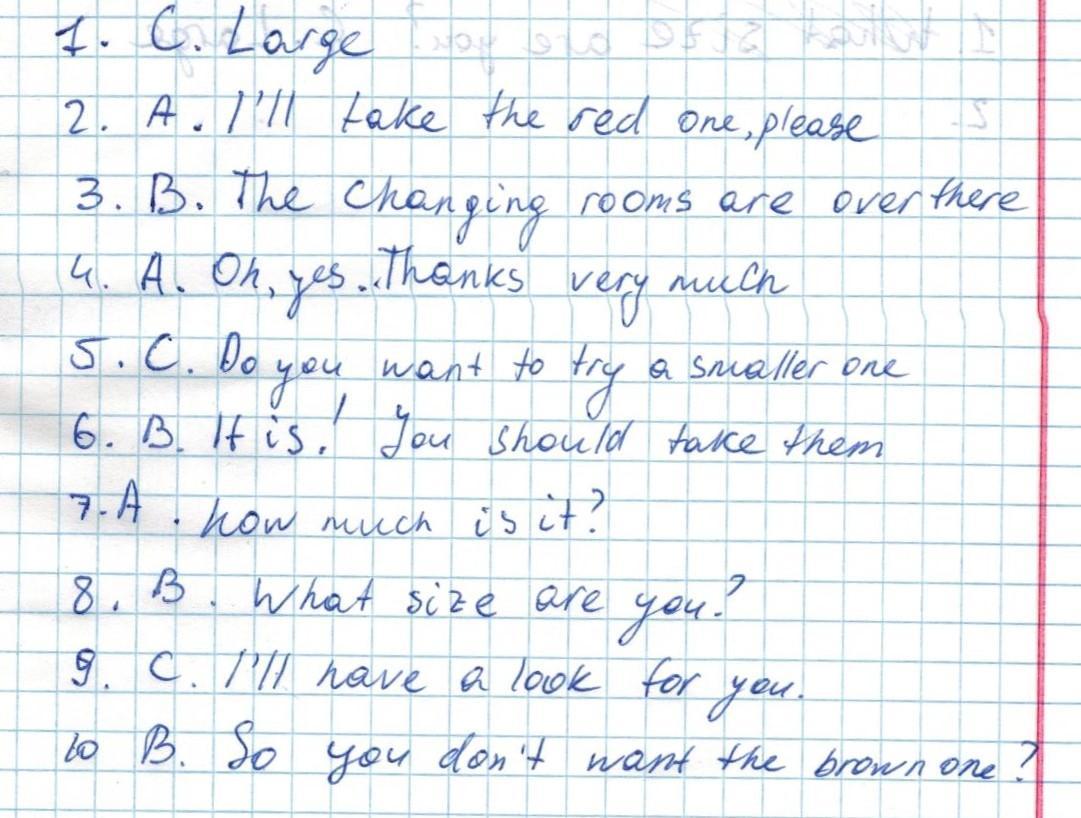 1. C. Large
2. A. I'll take the red one, please
3. B. The changing rooms are over there
4. A. Oh, yes. Thanks very much
5. C. Do you want to try a smaller one
6. B. It is! You should take them
7. A. How much is it?
8. B. What size are you?
9. C. I'll have a look for you.
10 B. So you don't want the brown one?